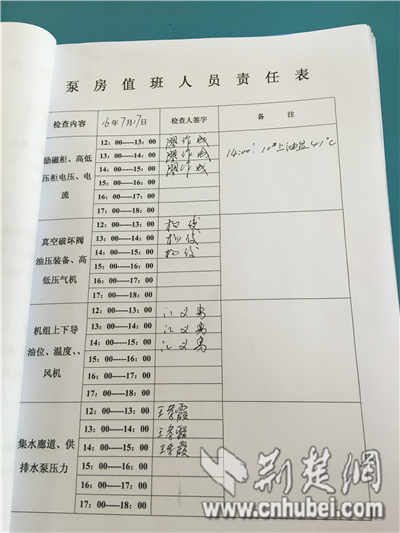 泵房值班人员责任表
检查内容 16年7月17日 检查人签字 备注
励磁柜、高低
压柜电压、电
流
12：00-----13：00
13：00-----14：00
14：00-----15：00 14:00: 10# 上油温 41℃
15：00-----16：00
16：00-----17：00
17：00-----18：00
真空破坏阀
油压装备、高
低压气机
12：00-----13：00
13：00-----14：00
14：00-----15：00
15：00-----16：00
16：00-----17：00
17：00-----18：00
机组上下导
油位、温度、、
风机
12：00-----13：00
13：00-----14：00
14：00-----15：00
15：00-----16：00
16：00-----17：00
17：00-----18：00
集水廊道、供
排水泵压力
12：00-----13：00
13：00-----14：00
14：00-----15：00
15：00-----16：00
16：00-----17：00
17：00-----18：00
荆楚网
www.cnhubei.com